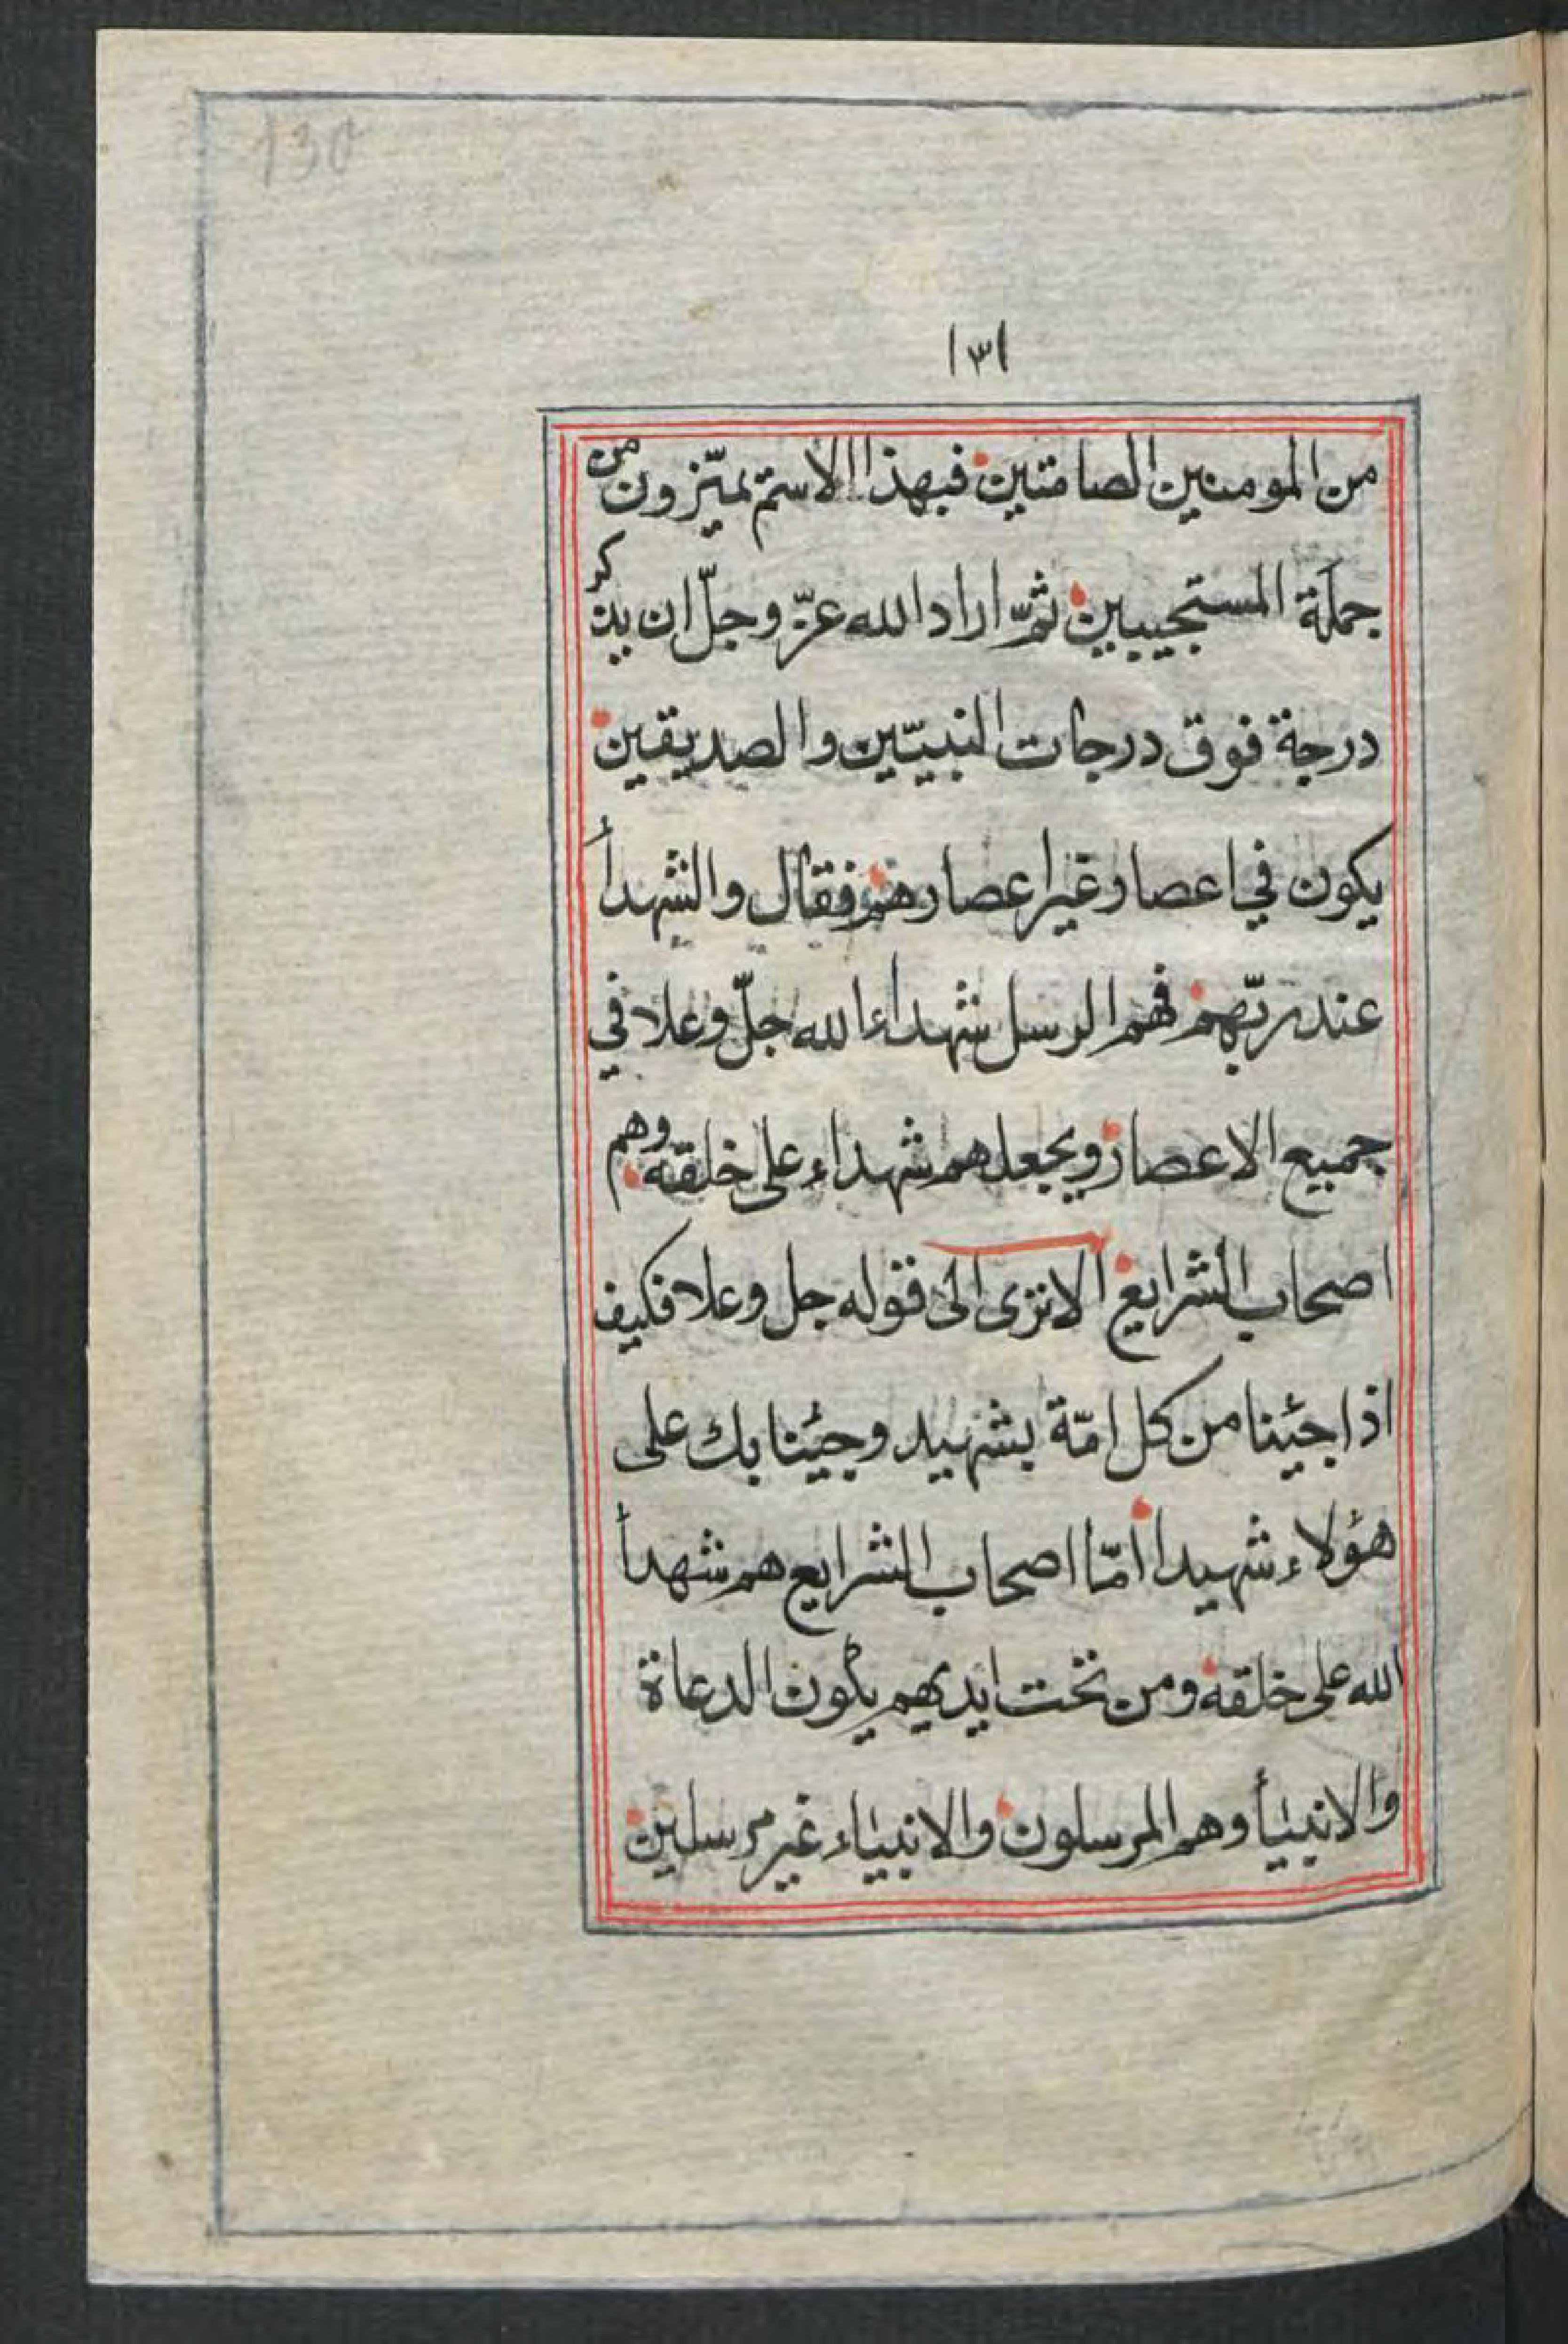 130
١٣١
من المومنين الصامتين فبهذا الاسم يميّزون من
جملة المستجيبين ثمّ اراد الله عزّ وجلّ ان يذكر
درجة فوق درجات النبيّين والصديقين
يكون في اعصار غير اعصارهم فقال والشهدأ
عند ربّهم فهم الرسل شهداء الله جلّ وعلا في
جميع الاعصار ويجعلهم شهداء على خلقه وهم
اصحاب الشرايع الا ترى الى قوله جل وعلا فكيف
اذا جئنا من كل امّة بشهيد وجئنا بك على
هؤلاء شهيدا امّا اصحاب الشرايع هم شهدأ
الله على خلقه ومن تحت ايديهم يكون الدعاة
والانبيأ وهم المرسلون والانبياء غير مرسلين